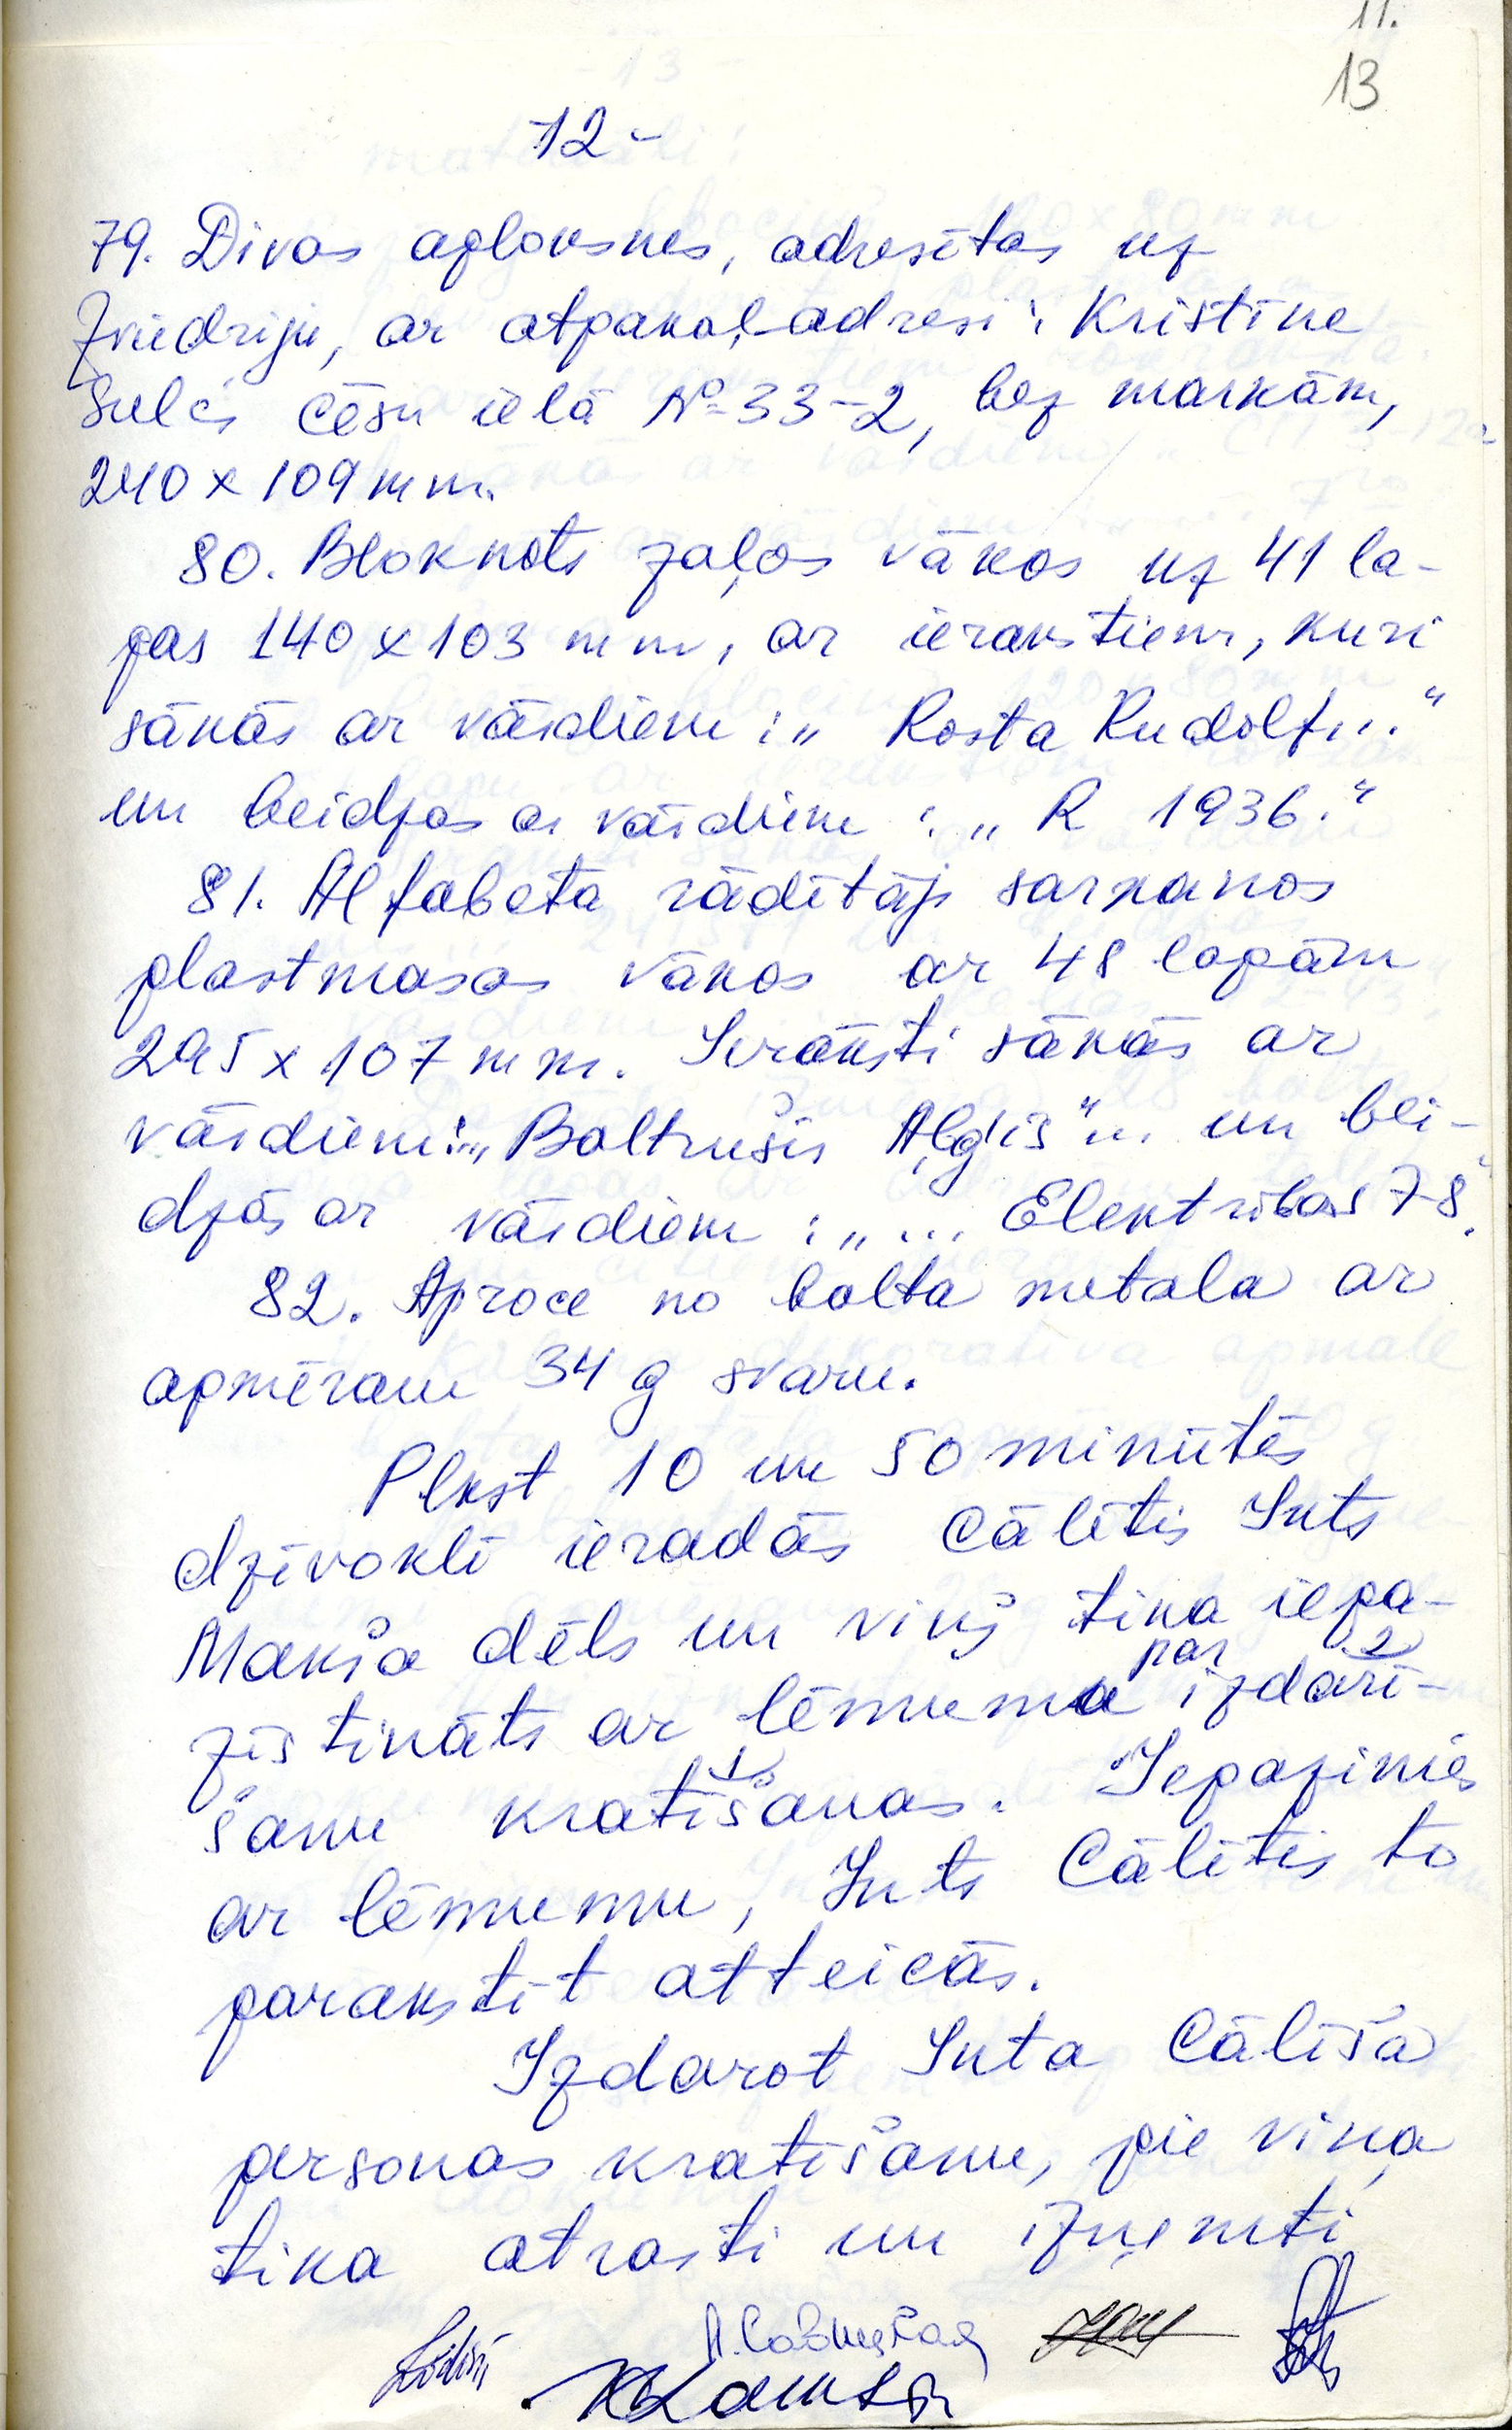 11.
13
12 -
79. Divas aploksnes, adresētas uz
Zviedriju, ar atpakaļadresi: Kristīne
Šulcs Cēsu ielā № 33-2, bez markām,
240 x 109 mm.
80. Bloknots zaļos vākos uz 41 la-
pas 140 x 103 mm, ar ierakstiem, kuri
sākās ar vārdiem: „Rosta Rudolfu..."
un beidzas ar vārdiem: „R 1936."
81. Alfabeta rādītājs sarkanos
plastmasas vākos ar 48 lapām
295 x 107 mm. Ieraksti sākās ar
vārdiem: „Baltrušis Aļģis"... un bei-
dzās ar vārdiem: „... Elektrības 7-8".
82. Aproce no balta metala ar
apmēram 34 g svaru.
Plkst 10 un 50 minūtēs
dzīvoklī ieradās Cālītis Ints
Makša dēls un viņš tika iepa-
par 2
zīstināts ar lēmuma izdarī-
1
šanu kratīšanas. Iepazinies
ar lēmumu, Ints Cālītis to
parakstīt atteicās.
Izdarot Inta Cālīša
personas kratīšanu, pie viņa
tika atrasti un izņemti